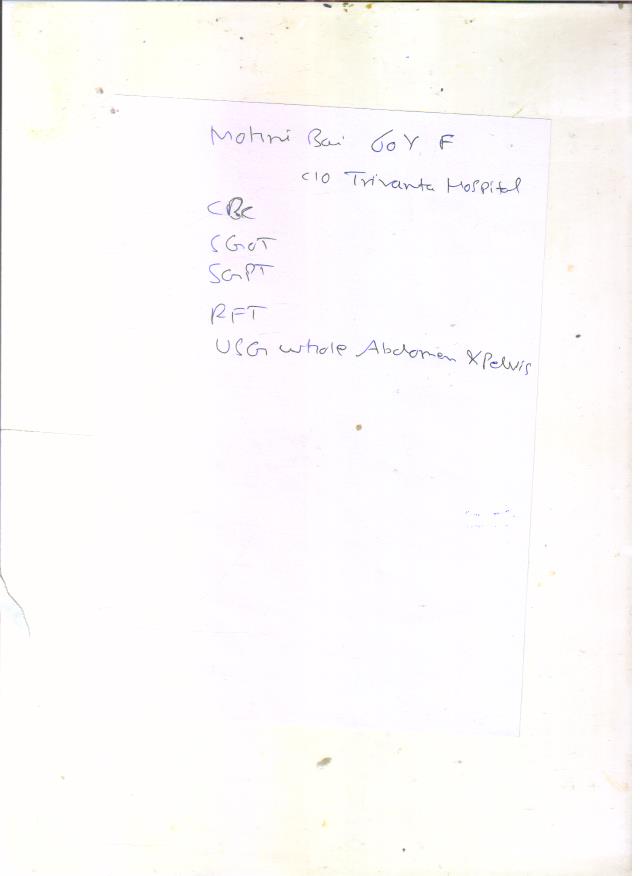 Mohini Bai 60Y F
C/O Trivanta Hospital
CBC
SGOT
SGPT
RFT
USG whole Abdomen & Pelvis